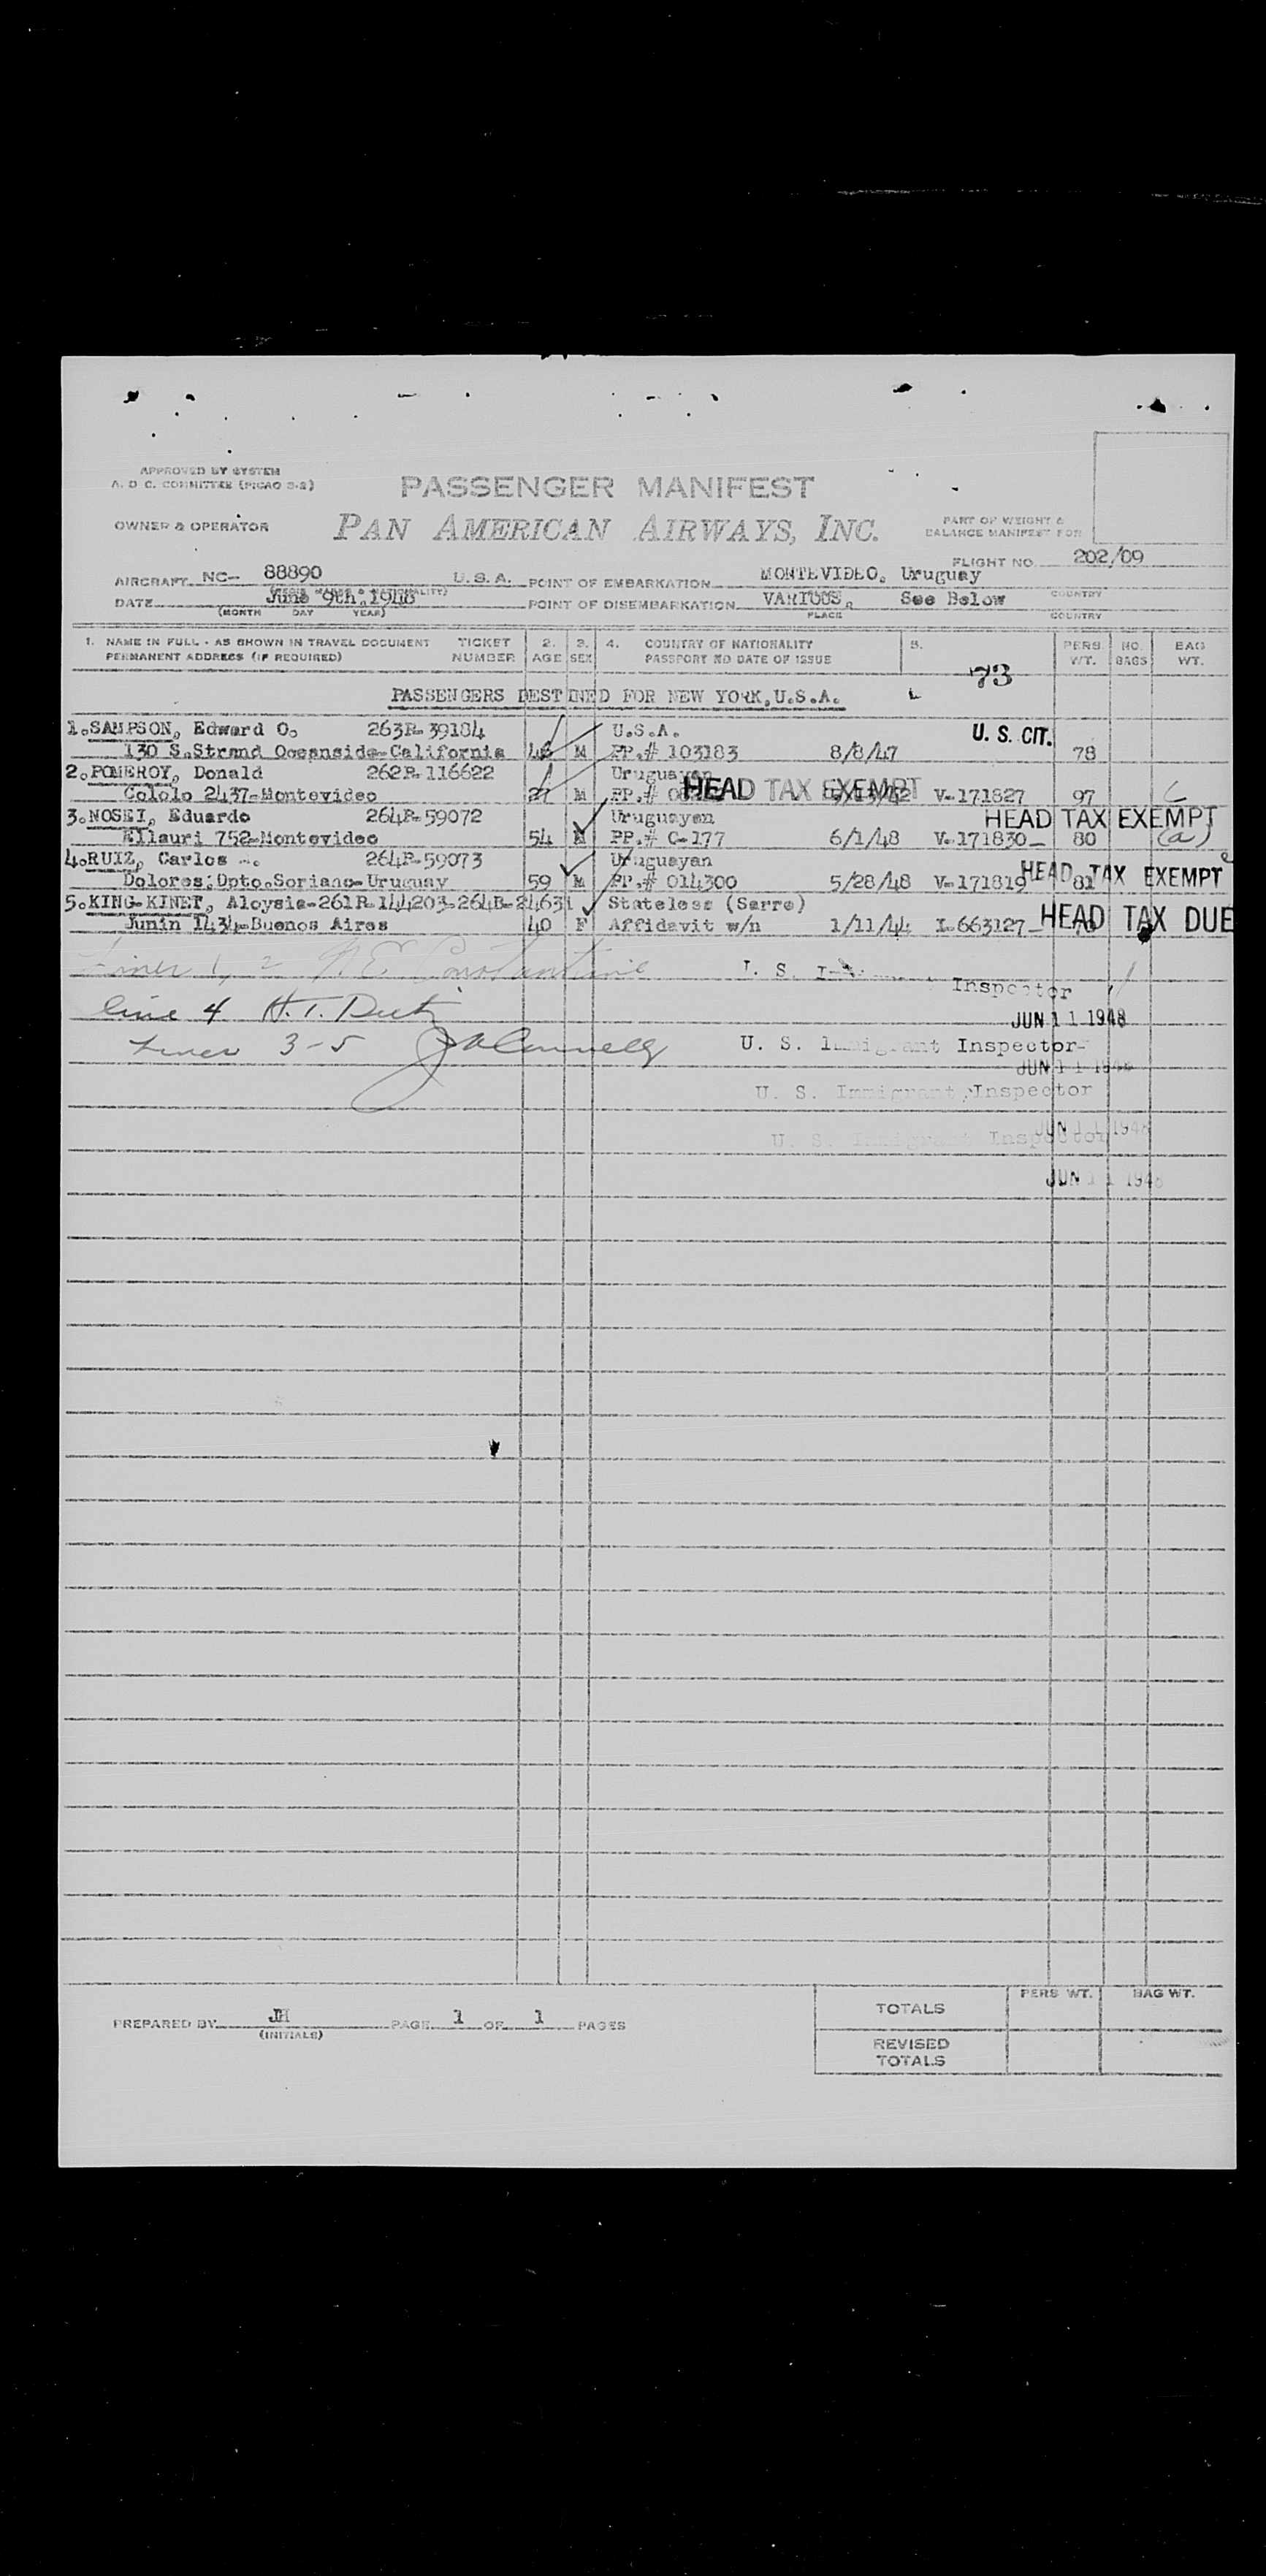 APPROVED BY SYSTEM
A. D C. COMMITTEE (PICAO S-2)
PASSENGER MANIFEST
OWNER & OPERATOR PAN AMERICAN AIRWAYS, INC.
PART OF WEIGHT &
BALANCE MANIFEST FOR
FLIGHT NO. 202/09
AIRCRAFT NC- 88890 U. S. A. POINT OF EMBARKATION MONTEVIDEO, Uruguay
DATE June 9th, 1948 POINT OF DISEMBARKATION VARIOUS, See Below COUNTRY
(MONTH DAY YEAR) PLACE COUNTRY
1. NAME IN FULL - AS SHOWN IN TRAVEL DOCUMENT TICKET 2. 3. 4. COUNTRY OF NATIONALITY 5. PERS. NO. BAG
PERMANENT ADDRESS (IF REQUIRED) NUMBER AGE SEX PASSPORT NO DATE OF ISSUE WT. BAGS WT.
73
PASSENGERS DESTINED FOR NEW YORK, U.S.A.
1. SAMPSON, Edward O. 263R-39184 U.S.A. U. S. CIT.
130 S.Strand Oceanside-California M PP.# 103183 8/8/47 78
2. POMEROY, Donald 262R-116622 Uruguayan HEAD TAX EXEMPT
Cololo 2437-Montevideo 27 M PP.# V-171827 97 C
3. NOSEI, Eduardo 264R-59072 Uruguayan HEAD TAX EXEMPT
Ellauri 752-Montevideo 54 M PP.# C-177 6/1/48 V-171830- 80 (a)
4. RUIZ, Carlos 264R-59073 Uruguayan HEAD TAX EXEMPT
Dolores.Dpto.Soriano-Uruguay 59 M PP.# 014300 5/28/48 V-171819 81
5. KING-KINET, Aloysia-261R-144203-264B-24631 Stateless (Sarre) HEAD TAX DUE
Junin 1434-Buenos Aires 40 F Affidavit w/n 1/11/44 I-663127-
Lines 1, 2 N. E. Constantine U. S. Inspector
line 4 H. T. JUN 11 1948
Lines 3-5 U. S. Immigrant Inspector
JUN 11 1948
U. S. Immigrant Inspector
JUN 11 1948
U. S. Immigrant Inspector
JUN 11 1948
PREPARED BY JH PAGE 1 OF 1 PAGES
(INITIALS)
PERS WT. BAG WT.
TOTALS
REVISED
TOTALS